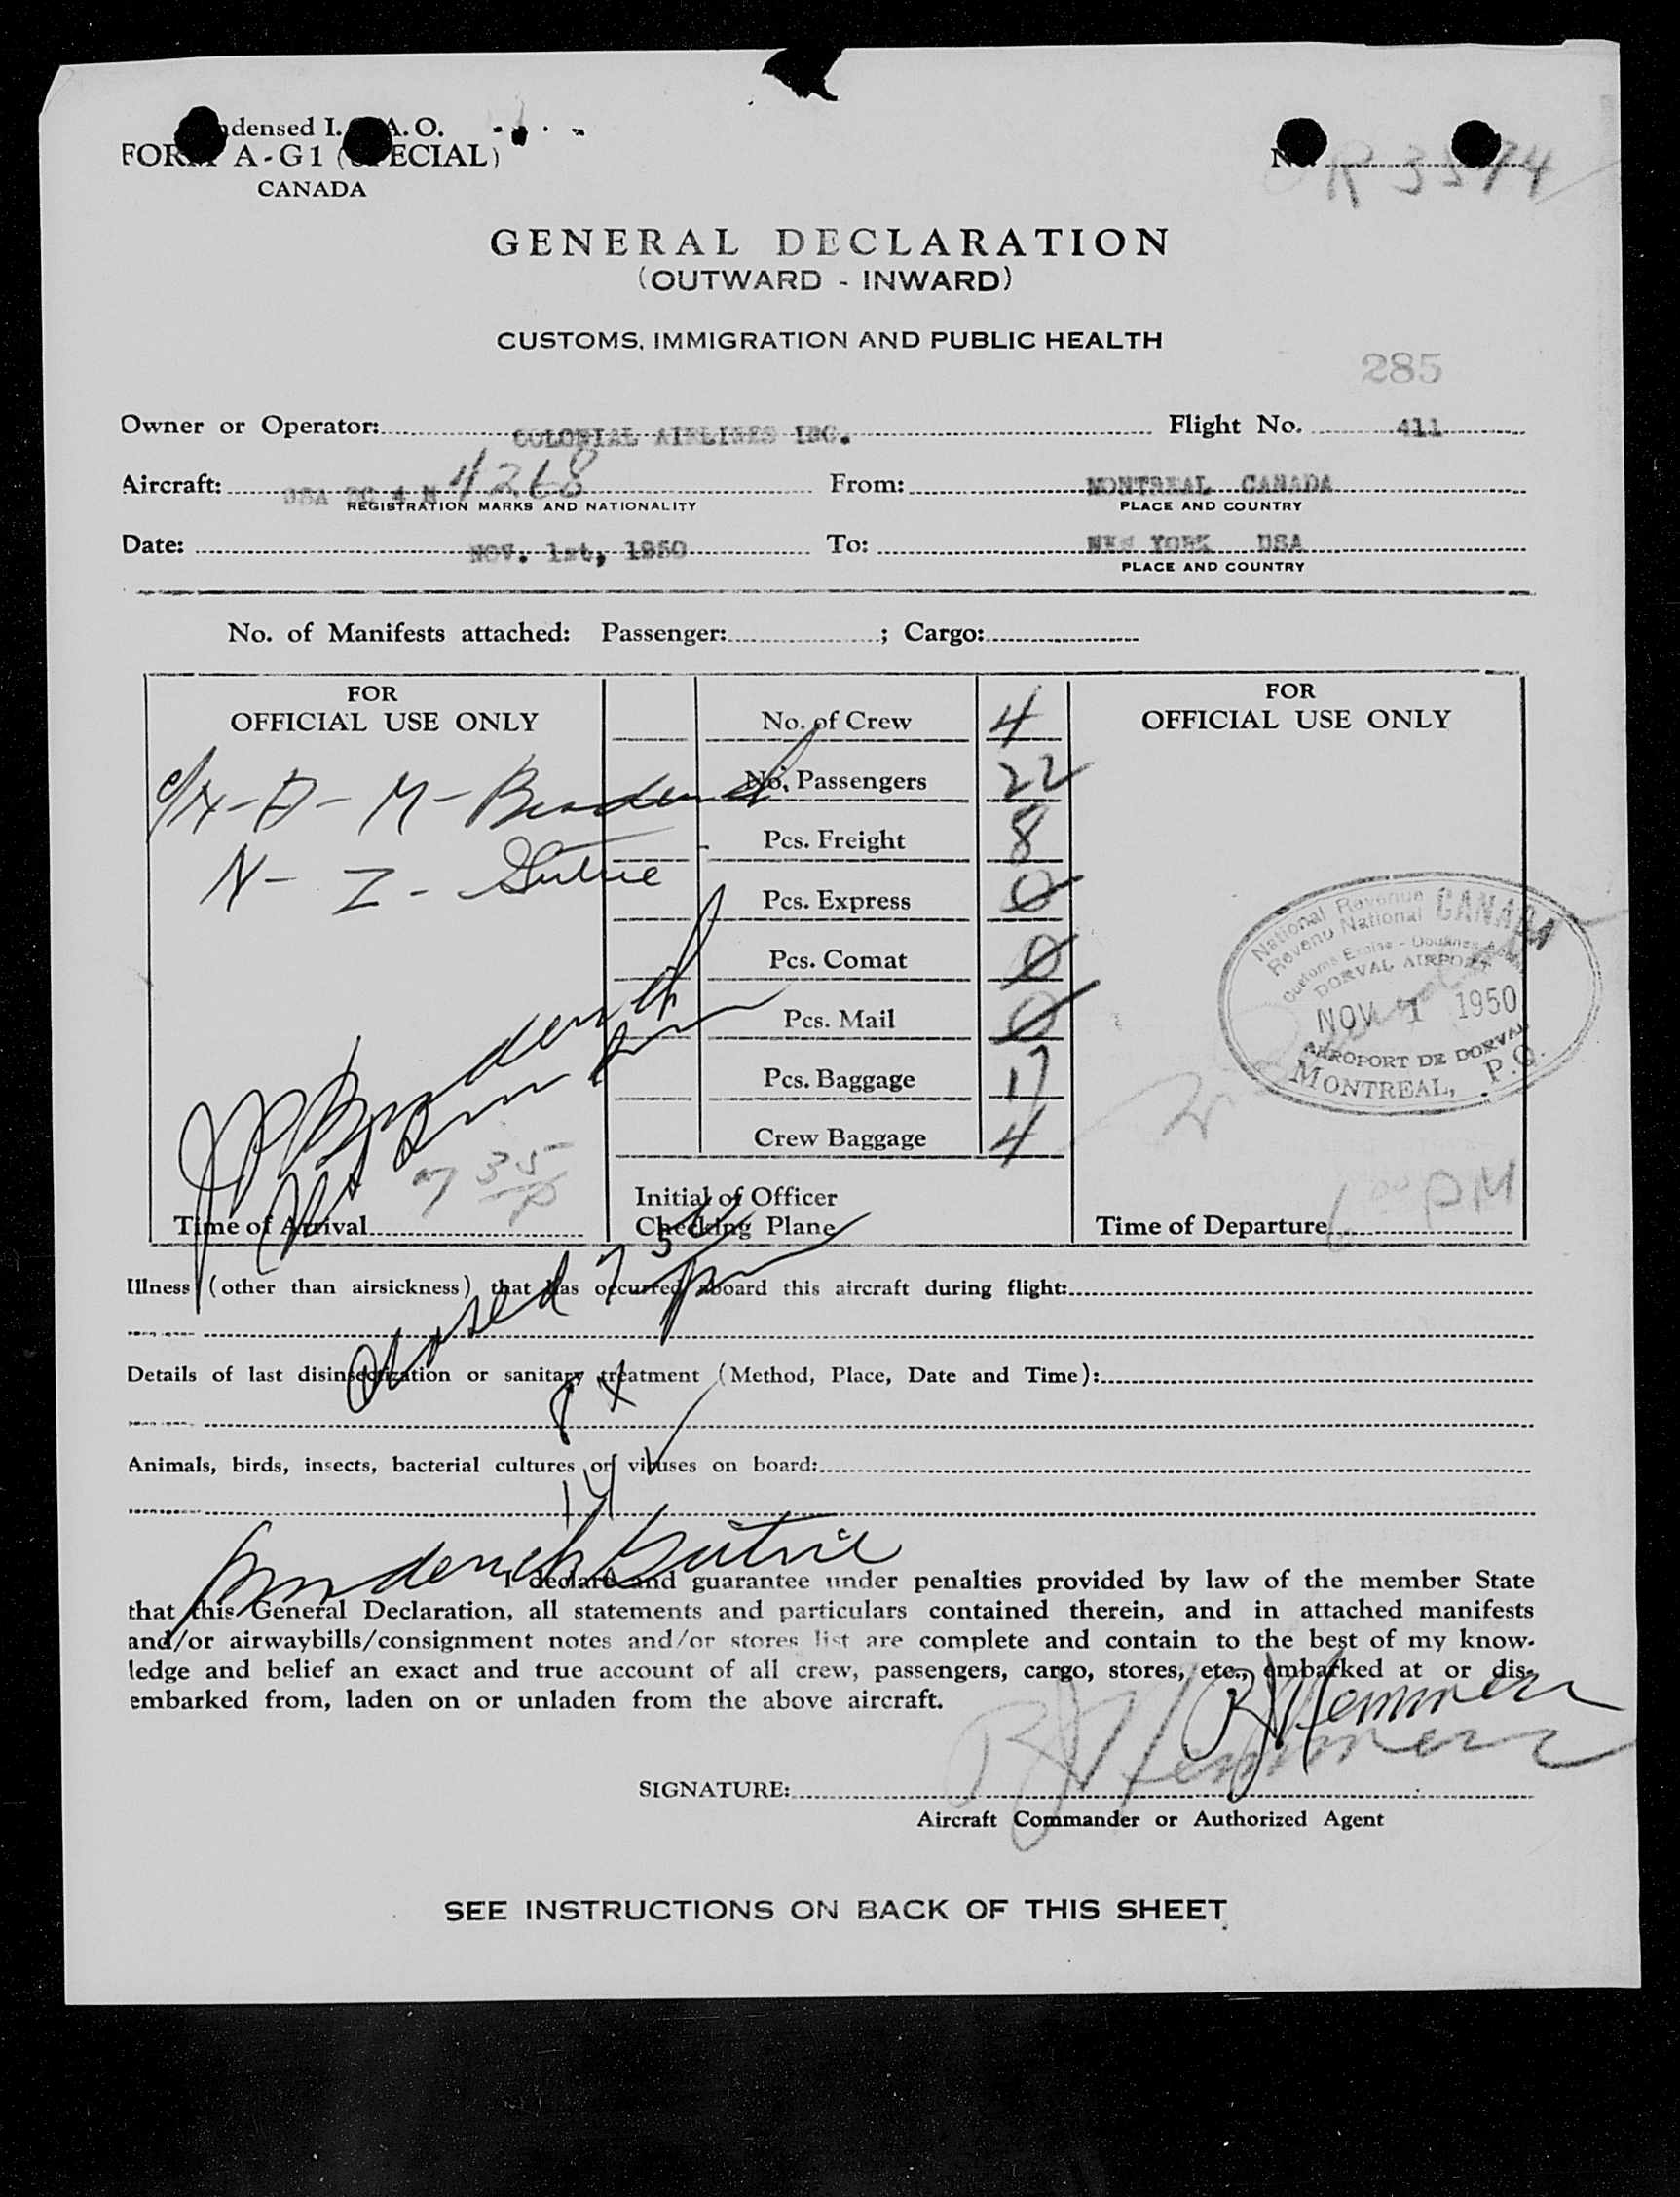 Condensed I.C.A.O.
FORM A-G1 (SPECIAL)
CANADA
No. R 3594
GENERAL DECLARATION
(OUTWARD - INWARD)
CUSTOMS, IMMIGRATION AND PUBLIC HEALTH
285
Owner or Operator: COLONIAL AIRLINES INC. Flight No. 411
Aircraft: USA DC 4 N 4268 From: MONTREAL CANADA
REGISTRATION MARKS AND NATIONALITY PLACE AND COUNTRY
Date: NOV. 1st, 1950 To: NEW YORK USA
PLACE AND COUNTRY
No. of Manifests attached: Passenger: ; Cargo:
FOR
OFFICIAL USE ONLY
No. of Crew 4
No. Passengers 22
Pcs. Freight 8
Pcs. Express 0
Pcs. Comat 0
Pcs. Mail 0
Pcs. Baggage 17
Crew Baggage 4
Initial of Officer
Checking Plane
FOR
OFFICIAL USE ONLY
National Revenue
Revenu National CANADA
DORVAL AIRPORT
NOV 1 1950
AEROPORT DE DORVAL
MONTREAL, P.Q.
7 35 P
Time of Arrival
Time of Departure 6 00 PM
Illness (other than airsickness) that has occurred aboard this aircraft during flight:
Details of last disinsectization or sanitary treatment (Method, Place, Date and Time):
Animals, birds, insects, bacterial cultures or viruses on board:
I declare and guarantee under penalties provided by law of the member State
that this General Declaration, all statements and particulars contained therein, and in attached manifests
and/or airwaybills/consignment notes and/or stores list are complete and contain to the best of my know-
ledge and belief an exact and true account of all crew, passengers, cargo, stores, etc., embarked at or dis-
embarked from, laden on or unladen from the above aircraft.
SIGNATURE:
Aircraft Commander or Authorized Agent
SEE INSTRUCTIONS ON BACK OF THIS SHEET